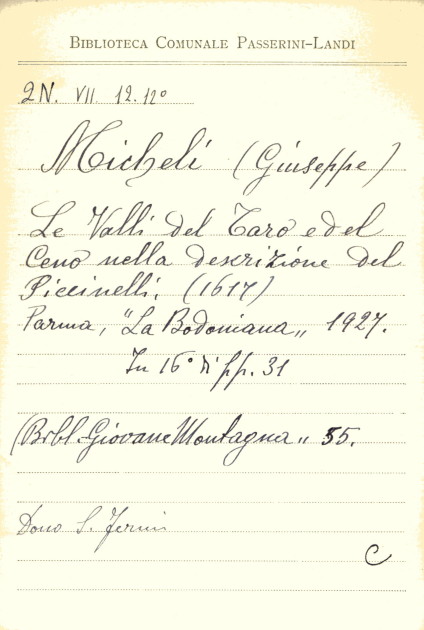 BIBLIOTECA COMUNALE PASSERINI-LANDI
2N. VII 12. 12°
Micheli (Giuseppe)
Le Valli del Taro e del
Ceno nella descrizione del
Piccinelli. (1617)
Parma, "La Bodoniana" 1927.
In 16° di pp. 31
(Bibl. Giovane Montagna" 55.
Dono S.
C